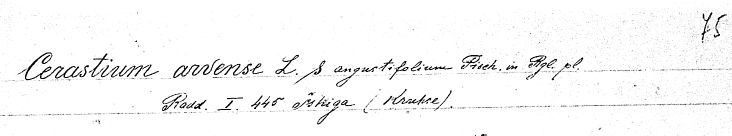 75
Cerastium arvense L. β angustifolium Fisch. in Rgl. pl.
Radd. I. 445 (Kruhse).